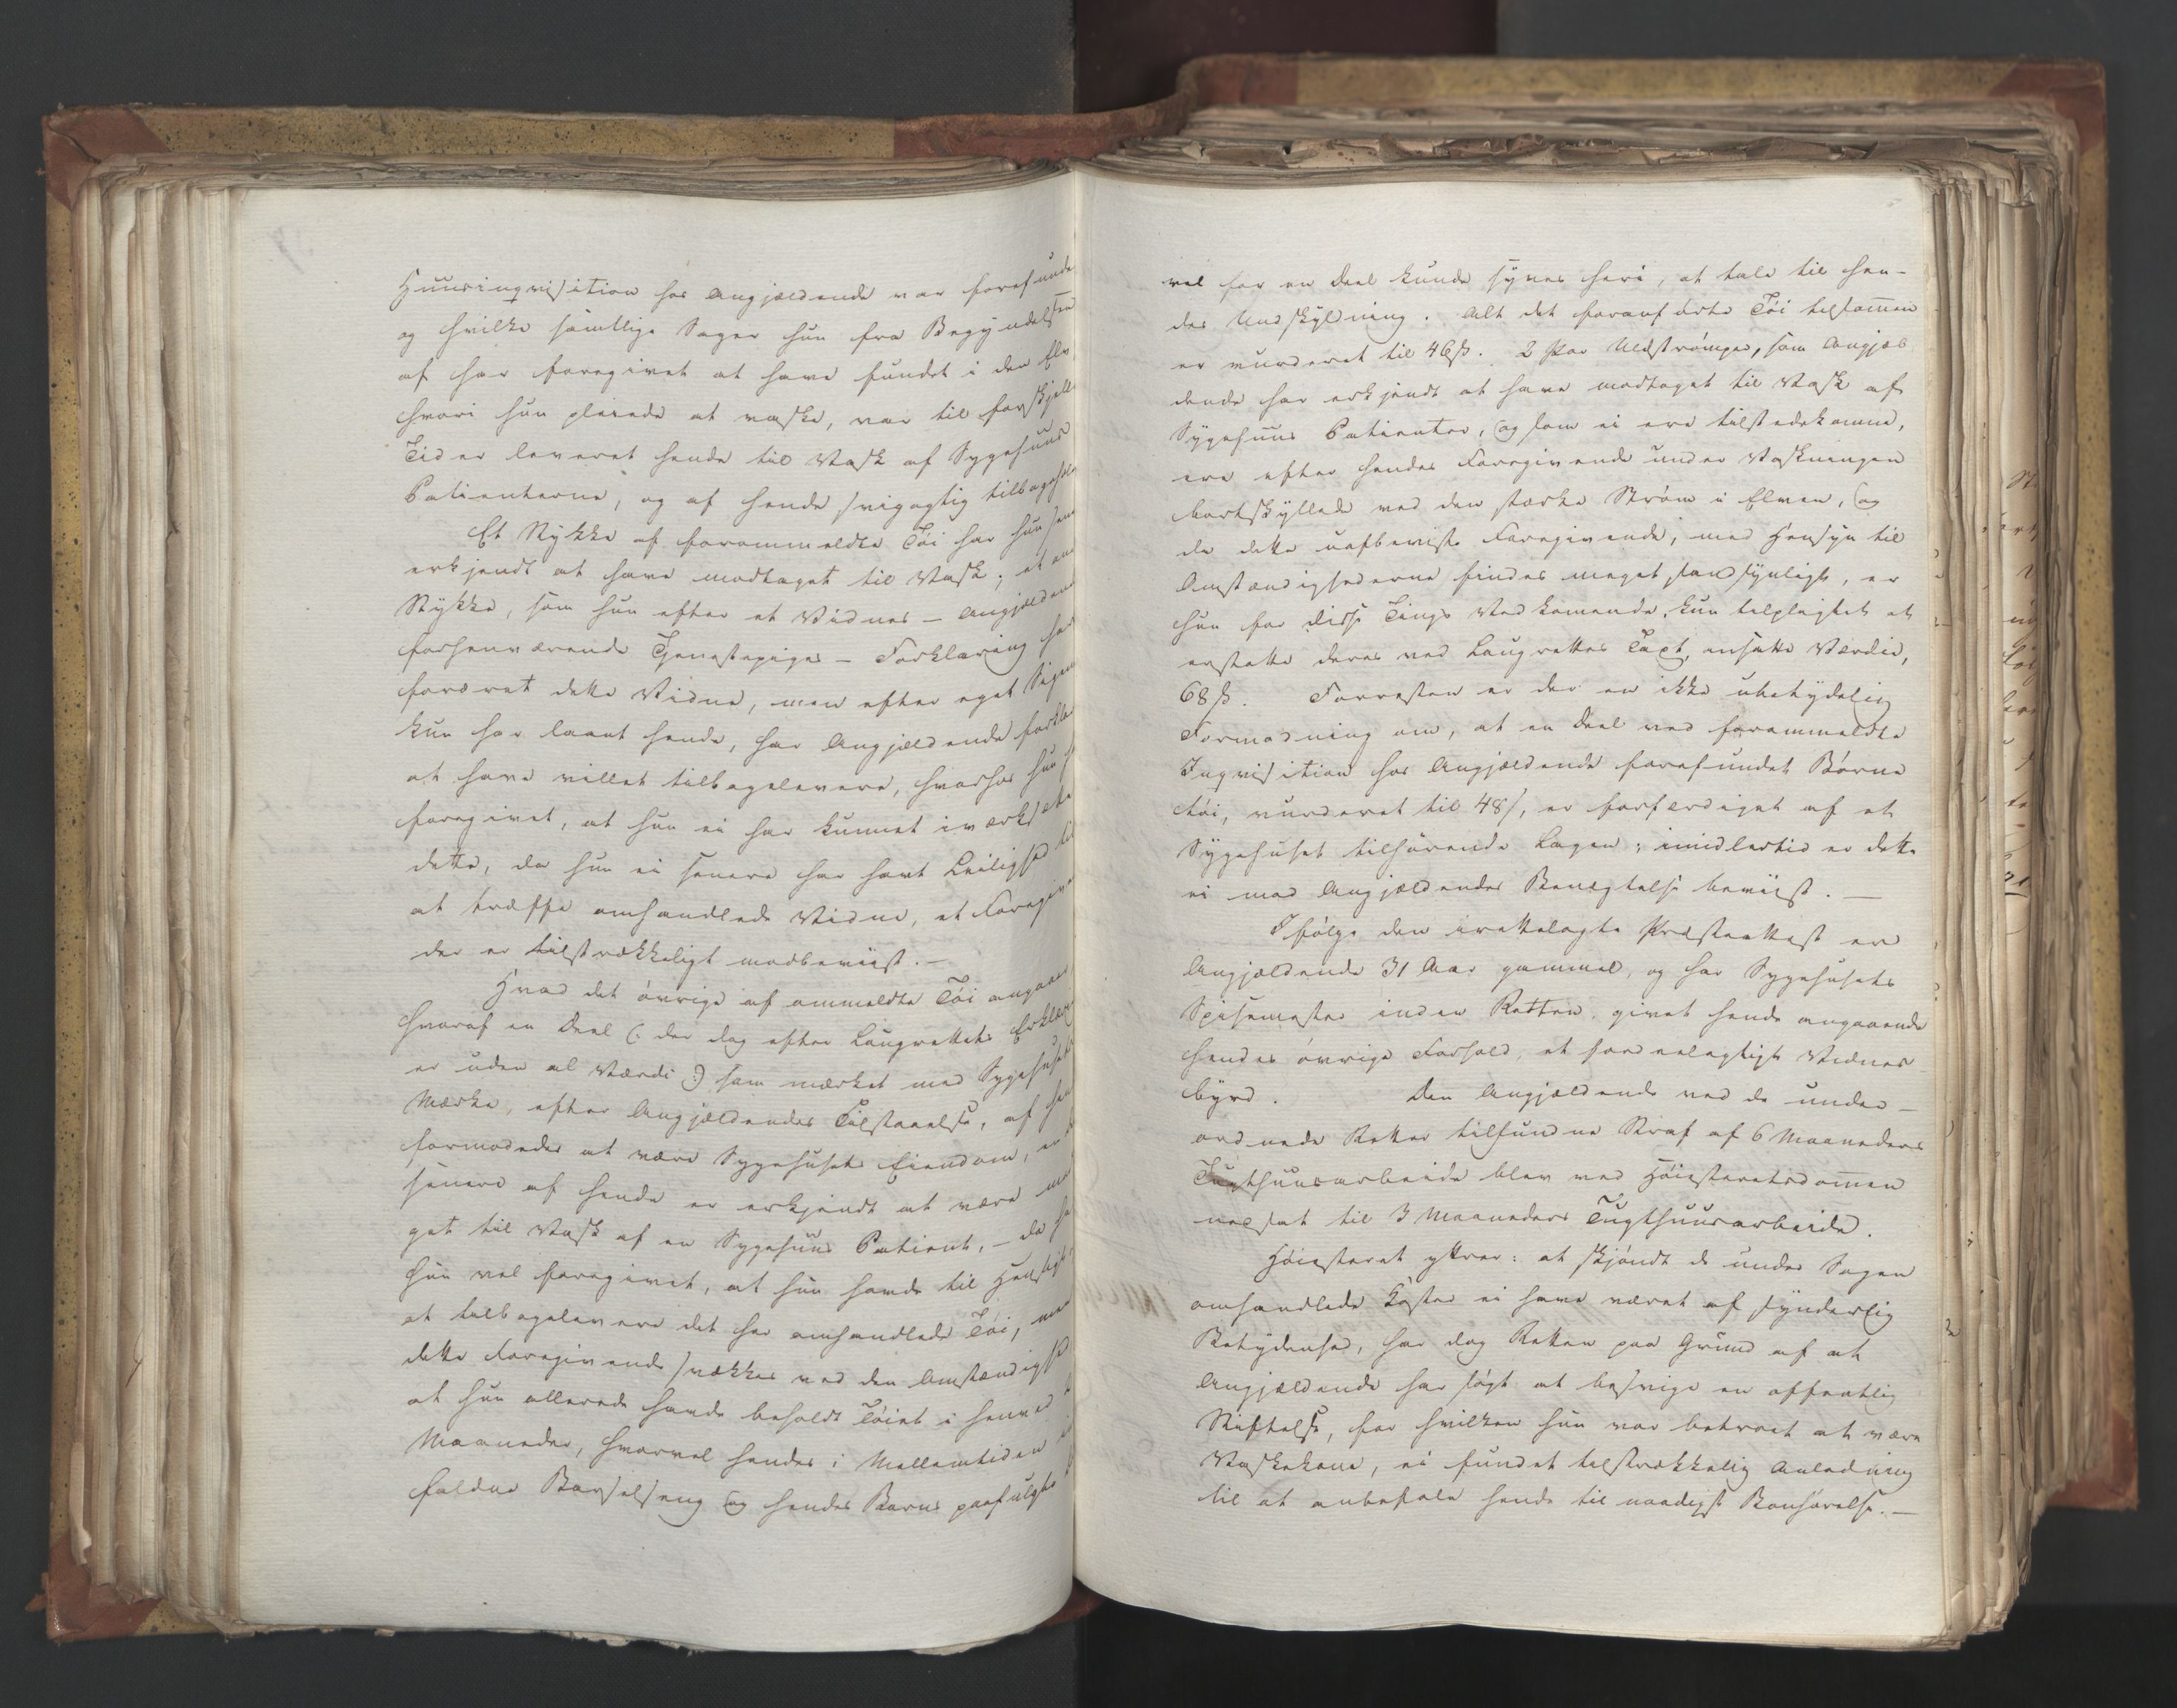 Huusinqvisition hos Angjældende var forefunde
og hvilke samtlige Sager hun fra Begyndelsen
af har foregivet at have fundet i den Elv
hvori hun pleiede at vaske, var til forskjell
Tider leveret hende til Vask af Sygehuus
Patienterne, og af hende svigagtig tilbageholdt
Et Stykke af forommeldte Tøi har hun
erkjendt at have modtaget til Vask; et
Stykke, som hun efter et Vidnes – Angjældende
forhenværende Tjenestepiges – Forklaring har
foræret dette Vidne, men efter eget Sigende
kun har laant hende, har Angjældende forkla
at have villet tilbagelevere, hvorhos hun
foregivet, at hun ei har kunnet iværksætte
dette, da hun ei senere har havt Leilighed til
at træffe omhandlede Vidne, et Foregive
der er tilstrækkeligt modbeviist. –
Hvad det øvrige af ommeldte Tøi angaaer
hvoraf en Deel (: der dog efter Laugrettets Erklær
er uden al Værdi :) som mærket med Sygehusets
Mærke, efter Angjældendes Tilstaaelse, af
formodedes at være Sygehusets Eiendom,
senere af hende er erkjendt at være
get til Vask af en Sygehuus Patient, – da
hun vel foregivet, at hun havde til Hensigt
at tilbagelevere det her omhandlede Tøi, men
dette Foregivende svækkes ved den Omstændighed
at hun allerede havde beholdt Tøiet i henved
Maaneder, hvorvel hendes i Mellemtiden
faldne Barselseng og hendes Barns paafulgte
vel for en Deel kunde synes heri, at tale til hen-
des Undskyldning. Alt det foranførte Tøi tilsammen
er vurderet til 46ß. 2 Par Uldstrømper, som Angjæl
dende har erkjendt at have modtaget til Vask af
Sygehuus Patienter, og som ei ere tilstedekomne,
ere efter hendes Foregivende under Vaskningen
bortskyllede ved den stærke Strøm i Elven, og
da dette uafbeviste Foregivende, med Hensyn til
Omstændighederne findes meget sandsynligt, er
hun for disse Tings Vedkommende kun tilpligtet at
erstatte deres ved Laugrettes Taxt ansatte Værdie,
68ß. Forresten er der en ikke ubetydelig
Formodning om, at en Deel ved forommeldte
Inqvisition hos Angjældende forefundet Børne
tøi, vurderet til 48ß, er forfærdiget af et
Sygehuset tilhørende Lagen; imidlertid er dette
ei mod Angjældendes Benægtelse beviist. –
Ifølge den irettelagte Præsteattest er
Angjældende 31 Aar gammel, og har Sygehusets
Spisemester inden Retten givet hende angaaende
hendes øvrige Forhold, et fordeelagtigt Vidnes-
byrd. Den Angjældende ved de under-
ordnede Retter tilfundne Straf af 6 Maaneders
Tugthuusarbeide blev ved Høiesteretsdommen
nedsat til 3 Maaneders Tugthuusarbeide.
Høiesteret yttrer: at skjøndt de under Sagen
omhandlede Koster ei have været af synderlig
Betydenhed, har dog Retten paa Grund af at
Angjældende har søgt at besvige en offentlig
Stiftelse, for hvilken hun var betroet at være
Vaskekone, ei fundet tilstrækkelig Anledning
til at anbefale hende til naadigst Bønhørelse. –